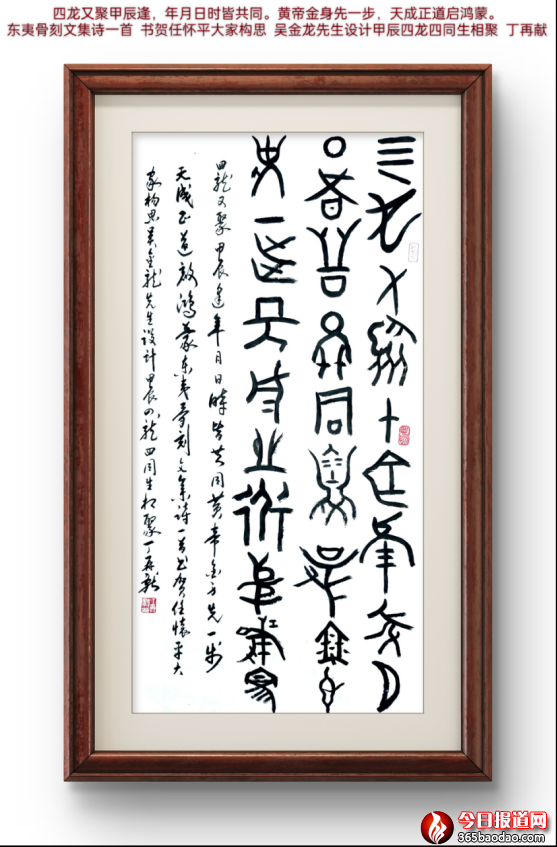 四龙又聚甲辰逢，年月日时皆共同。黄帝金身先一步，天成正道启鸿蒙。
东夷骨刻文集诗一首 书贺任怀平大家构思 吴金龙先生设计甲辰四龙四同生相聚 丁再献
四龙又聚甲辰逢年月
日时皆共同黄帝金身
先一步天成正道启鸿蒙
四龙又聚甲辰逢年月日時皆共同黄帝金身先一步
天成正道啟鸿蒙东夷骨刻文集诗一首书贺任怀平大
家构思吴金龙先生设计甲辰四龙四同生相聚丁再献
今日报道网
365baodao.com